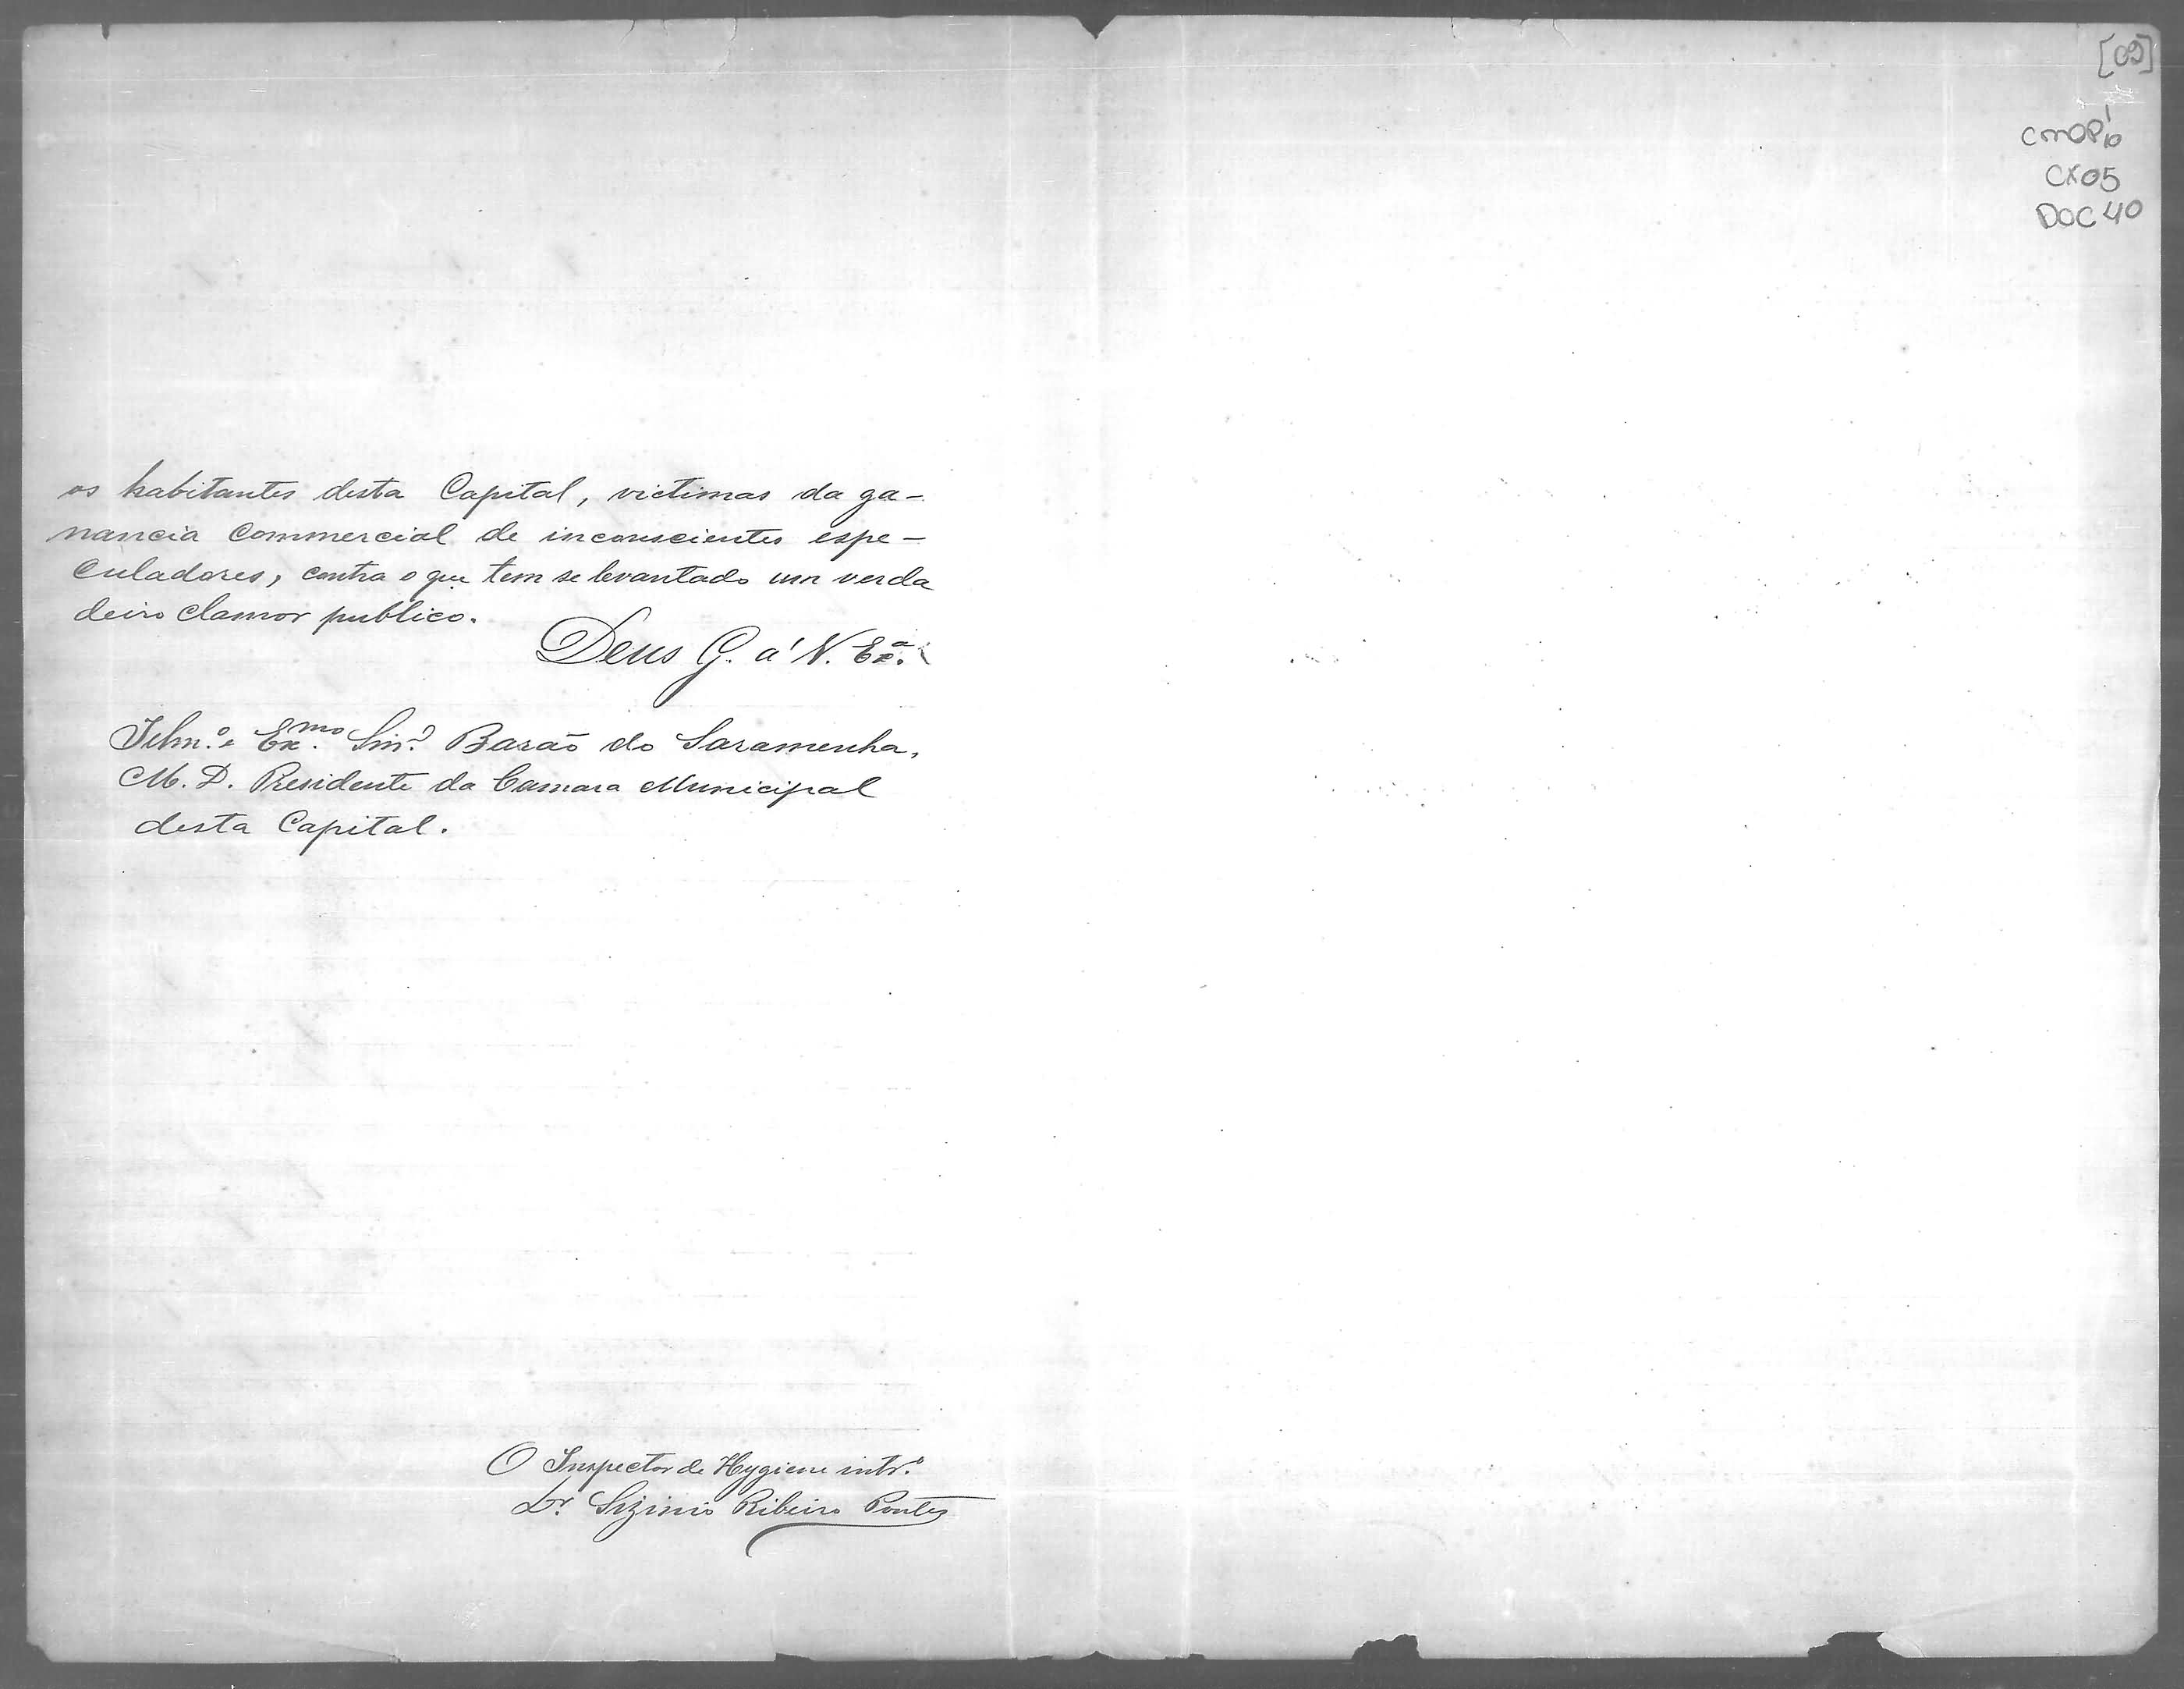 os habitantes desta Capital, victimas da ga-
nancia Commercial de inconscientes espe-
culadores, contra o que tem se levantado um verda
deiro clamor publico.
Deus G. a' V. Exª.
Illm.º e Ex.mo Snr. Barão do Saramenha,
M. D. Presidente da Camara Municipal
desta Capital.
O Inspector de Hygiene intr.º
Dr. Sizinio Ribeiro Pontes
[09]
CMOP
CX05
DOC 40